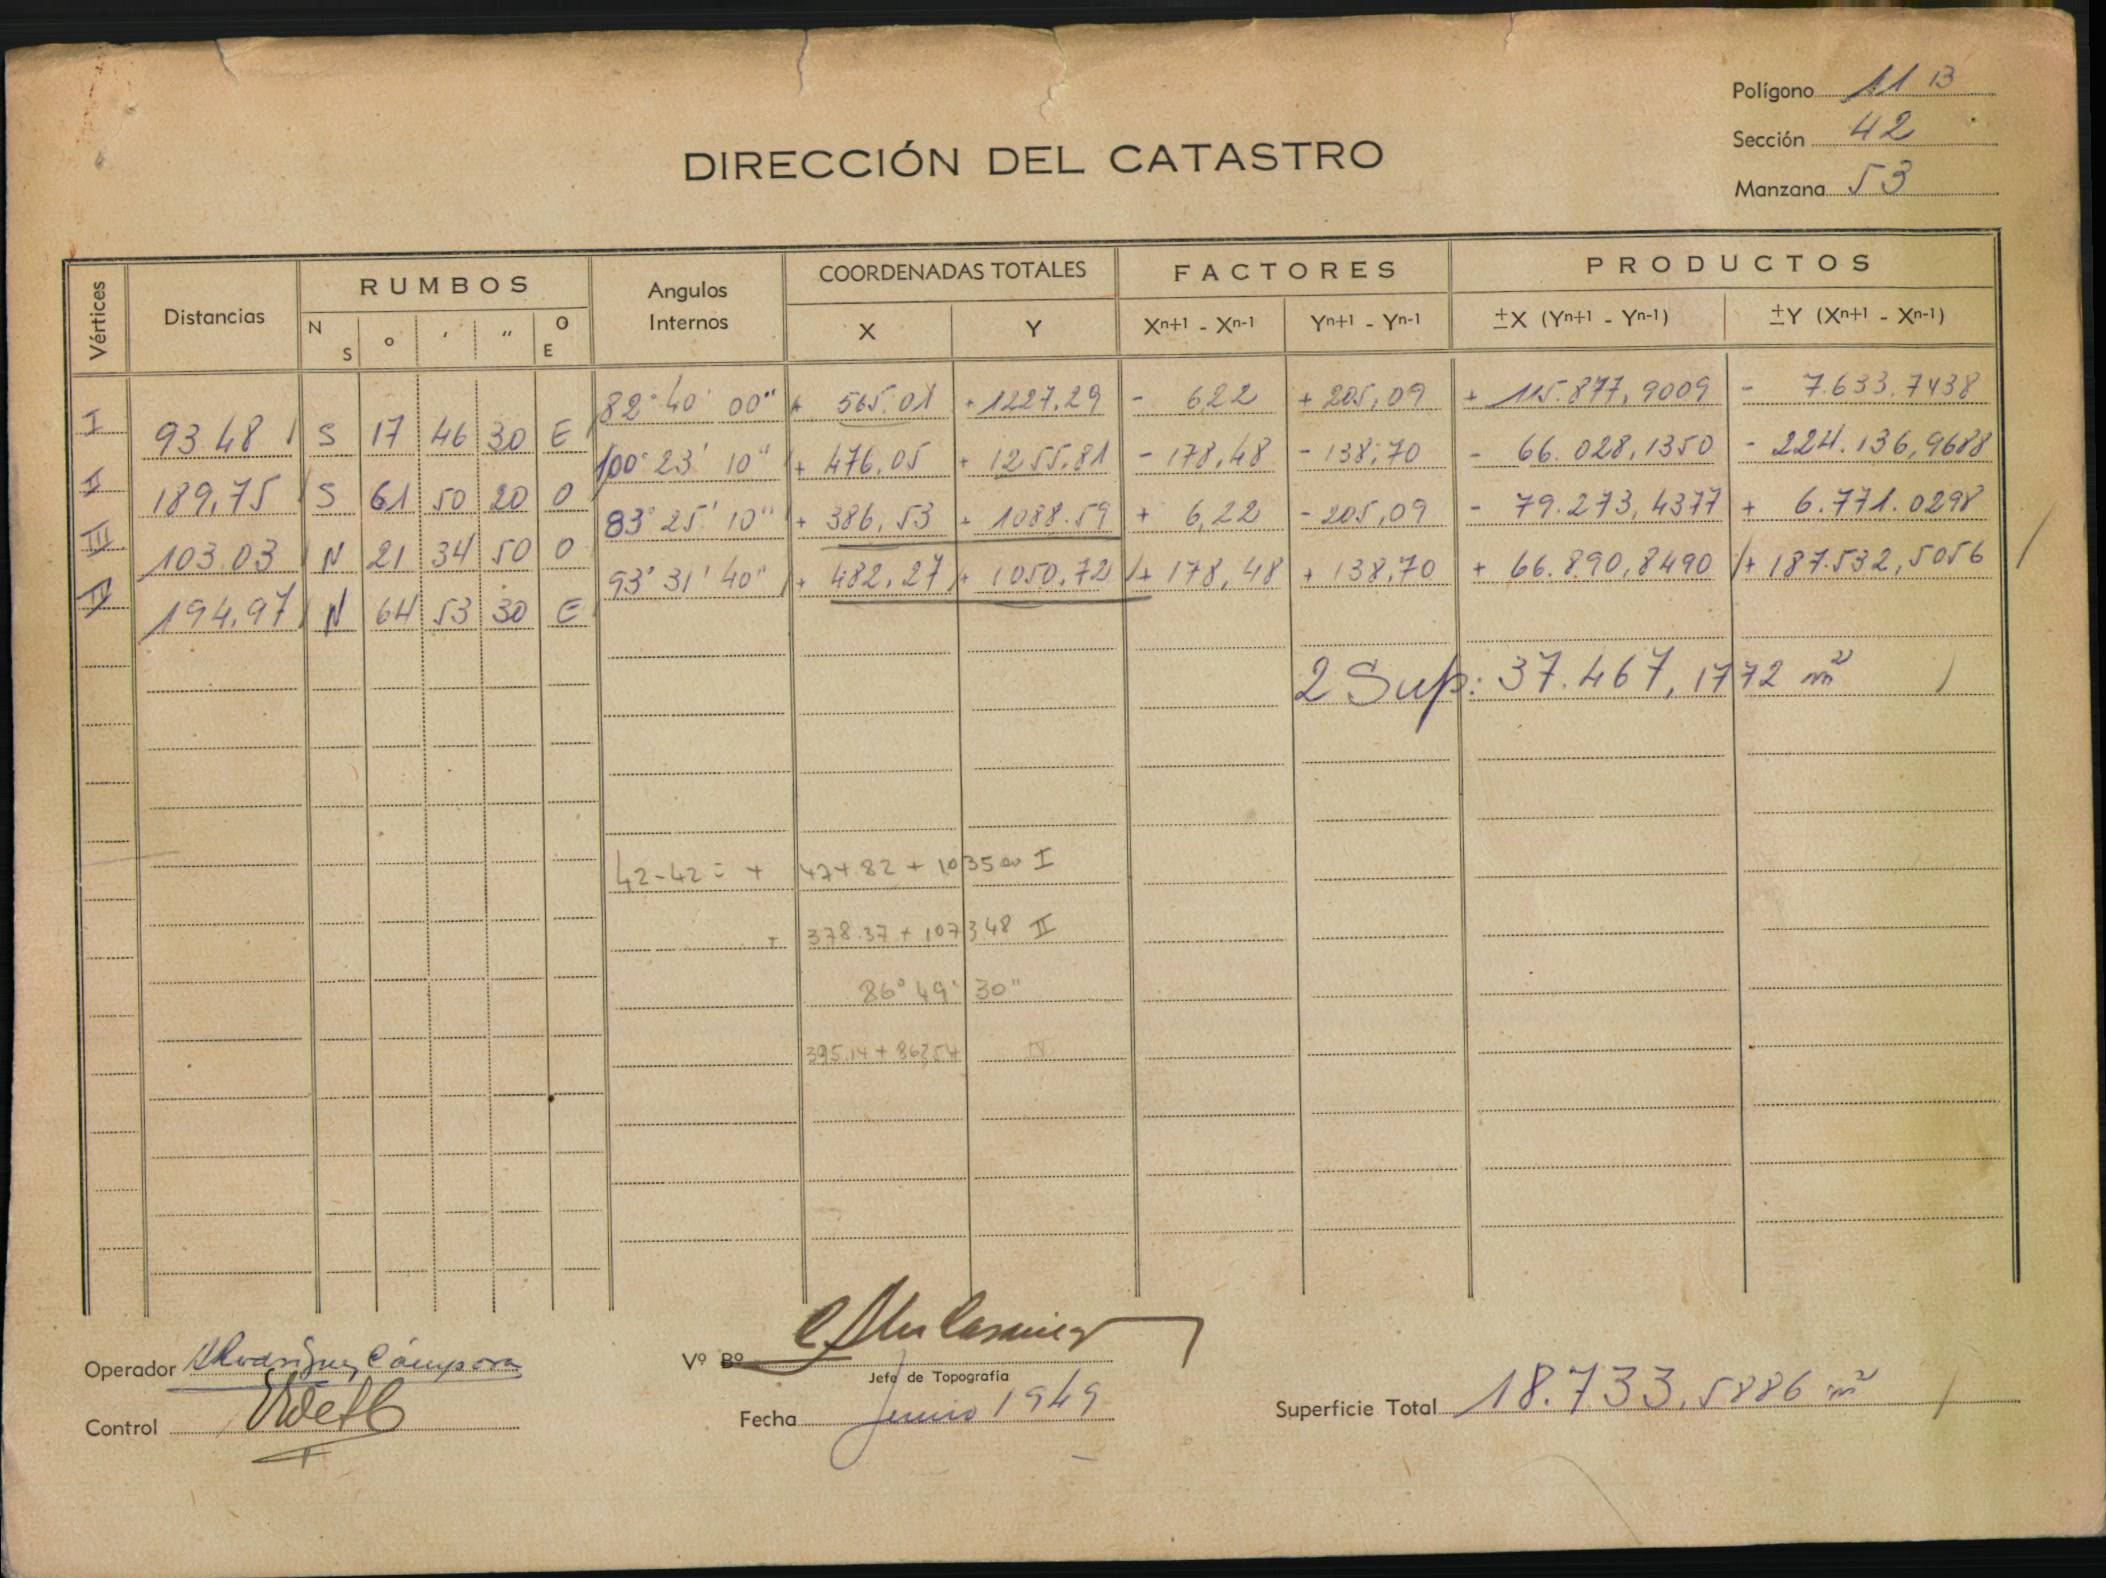 Polígono 11 B
Sección 42
Manzana 53
DIRECCIÓN DEL CATASTRO
Vértices Distancias RUMBOS Angulos Internos COORDENADAS TOTALES FACTORES PRODUCTOS
N S o ′ ″ O E X Y Xn+1 - Xn-1 Yn+1 - Yn-1 ±X (Yn+1 - Yn-1) ±Y (Xn+1 - Xn-1)
82° 40' 00" + 565.01 + 1227,29 - 6,22 + 205,09 + 115.877,9009 - 7.633.7438
I 93 48 S 17 46 30 E
100° 23' 10" + 476,05 + 1255.81 - 178,48 - 138,70 - 66.028,1350 - 224.136,9688
II 189,75 S 61 50 20 O
83° 25' 10" + 386,53 + 1088.59 + 6,22 - 205,09 - 79.273,4377 + 6.771.0298
III 103.03 N 21 34 50 O
93° 31' 40" + 482,27 + 1050,72 + 178,48 + 138,70 + 66.890,8490 + 187.532,5056
IV 194,97 N 64 53 30 E
2 Sup: 37.467,1772 m²
42-42 = + 474.82 + 1035 00 I
+ 378.37 + 1073 48 II
86° 49' 30"
395.14 + 86254
Operador Rodriguez Cámpora
Vº Bº
Jefe de Topografía
Control
Fecha Junio 1949
Superficie Total 18.733,5886 m²